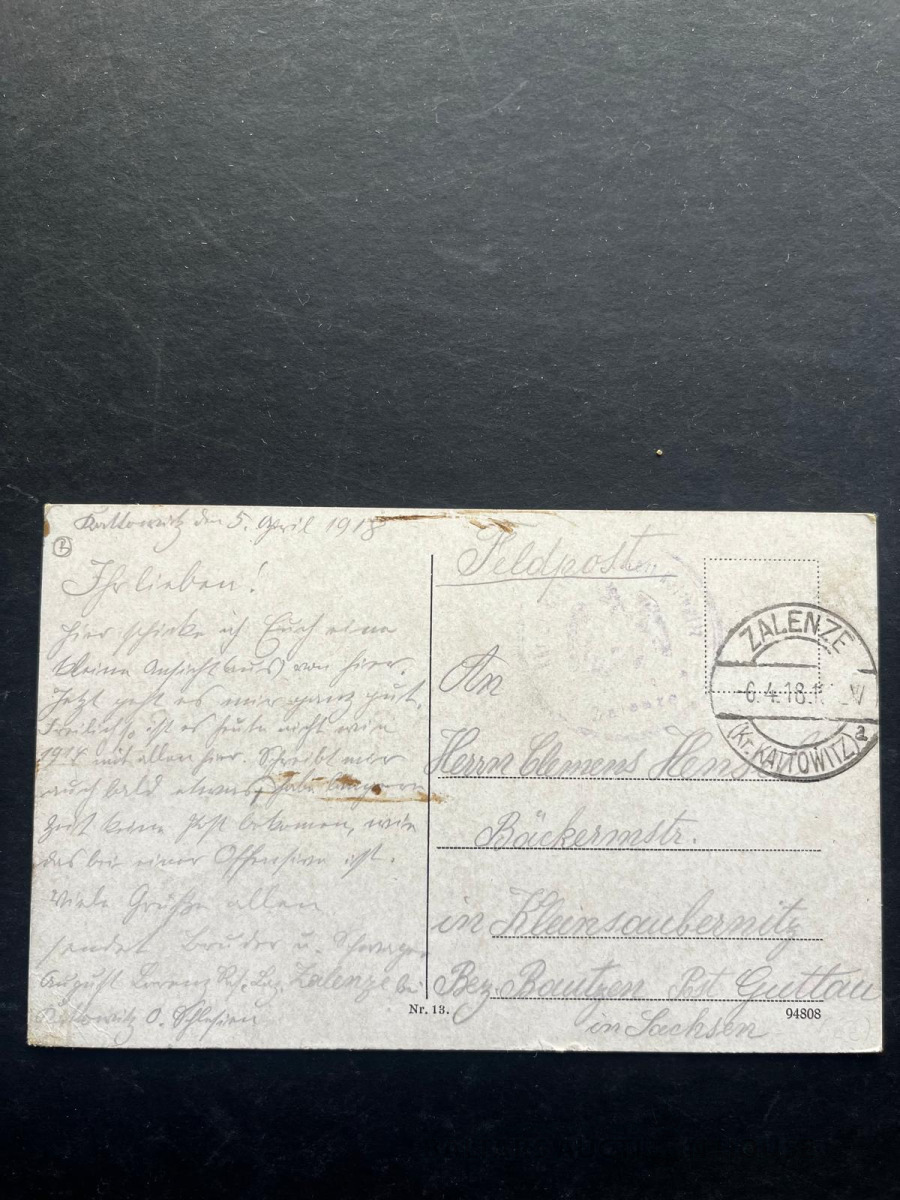 Kattowitz den 5. April 1918
Ihr lieben!
Hier schicke ich Euch eine
kleine Ansicht aus von hier.
Jetzt geht es mir ganz gut.
Freilich, ist es heute nicht wie
mit allen hier. Schreibt mir
auch bald etwas, habe längere
Zeit keine Post bekomen, wie
das bei einer Offensive ist.
Viele Grüße allen
sendet Bruder u. Schwager
August Lorenz Res. Laz. Zalenze bei
Kattowitz O. Schlesien
Feldpost
An
Herrn Clemens
Bäckermstr.
in Kleinsaubernitz
Bez. Bautzen Post Guttau
in Sachsen
ZALENZE
-6.4.18.
(Kr. KATTOWITZ) a
Nr. 13.
94808